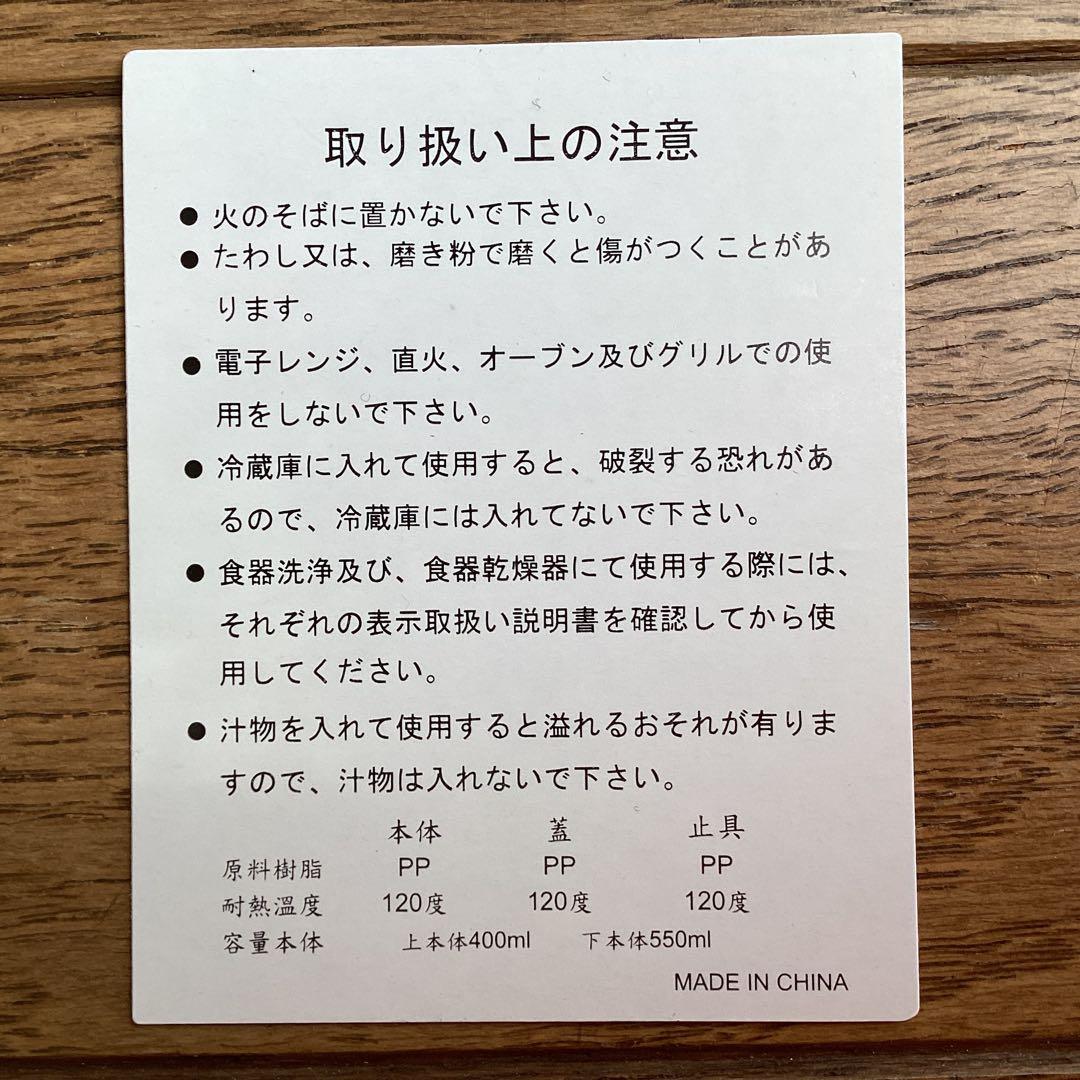 取り扱い上の注意
● 火のそばに置かないで下さい。
● たわし又は、磨き粉で磨くと傷がつくことがあ
ります。
● 電子レンジ、直火、オーブン及びグリルでの使
用をしないで下さい。
● 冷蔵庫に入れて使用すると、破裂する恐れがあ
るので、冷蔵庫には入れてないで下さい。
● 食器洗浄及び、食器乾燥器にて使用する際には、
それぞれの表示取扱い説明書を確認してから使
用してください。
● 汁物を入れて使用すると溢れるおそれが有りま
すので、汁物は入れないで下さい。
本体 蓋 止具
原料樹脂 PP PP PP
耐熱溫度 120度 120度 120度
容量本体 上本体400ml 下本体550ml
MADE IN CHINA